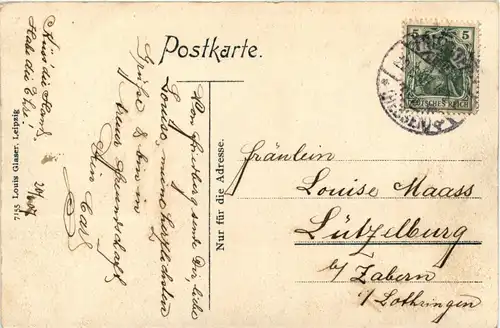 Postkarte.
5 5
DEUTSCHES REICH
Küss' die Hand
Habe die Ehre!
Von Freiburg sende Dir, liebe
Louise, meine herzlichsten
Grüße & bin in
treuer Freundschaft
Dein Carl
7155 Louis Glaser, Leipzig
Nur für die Adresse.
Fräulein
Louise Maass
Lützelburg
b/ Zabern
i/ Lothringen